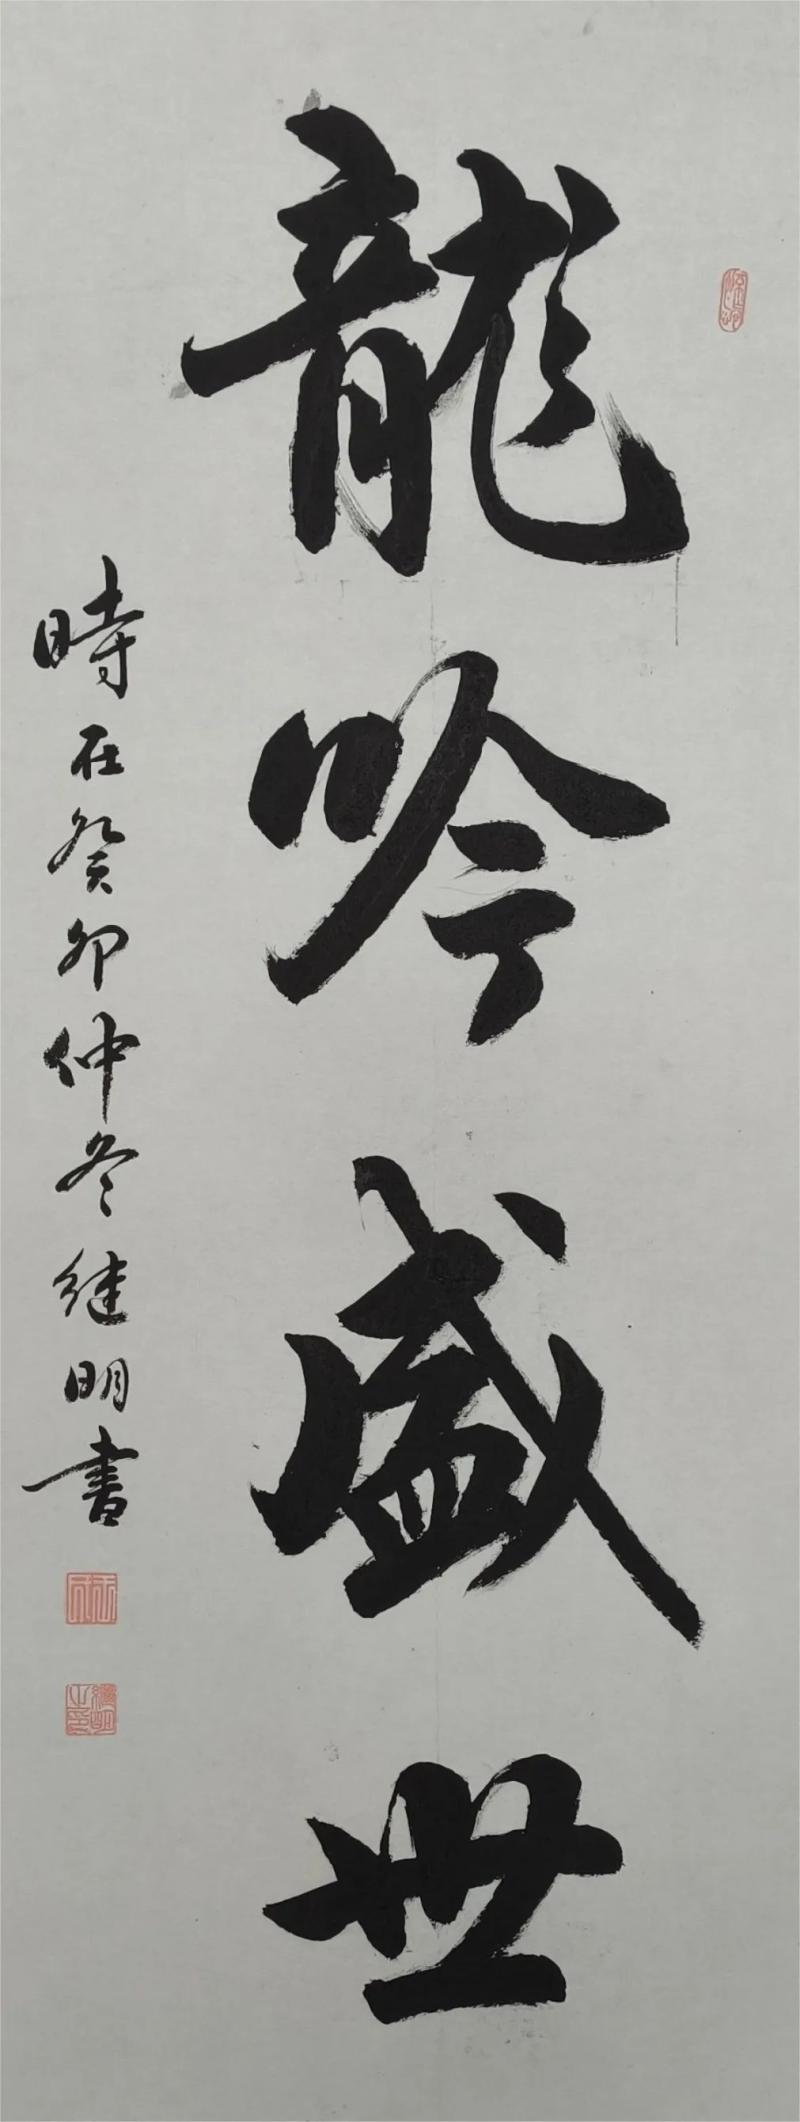 龍吟盛世
時在癸卯仲冬继明書